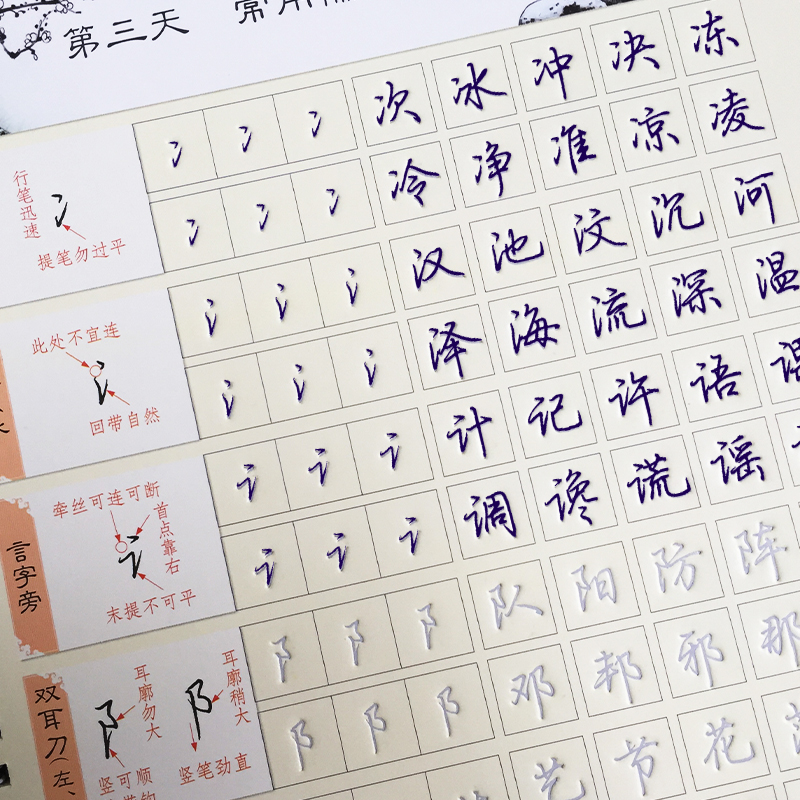 第三天 常用
行笔迅速
提笔勿过平
冫 冫 冫 次 冰 冲 决 冻
冫 冫 冫 冷 净 准 凉 凌
此处不宜连
回带自然
氵 氵 氵 汉 池 汶 沉 河
氵 氵 氵 泽 海 流 深 温
言字旁
牵丝可连可断
首点靠右
末提不可平
讠 讠 讠 计 记 许 语 谓
讠 讠 讠 调 谗 谎 谣
双耳刀(左、
耳廓勿大
竖可顺
耳廓稍大
竖笔劲直
阝 阝 阝 队 阳 防 阵
阝 阝 阝 邓 邦 邪 那
艺 节 花